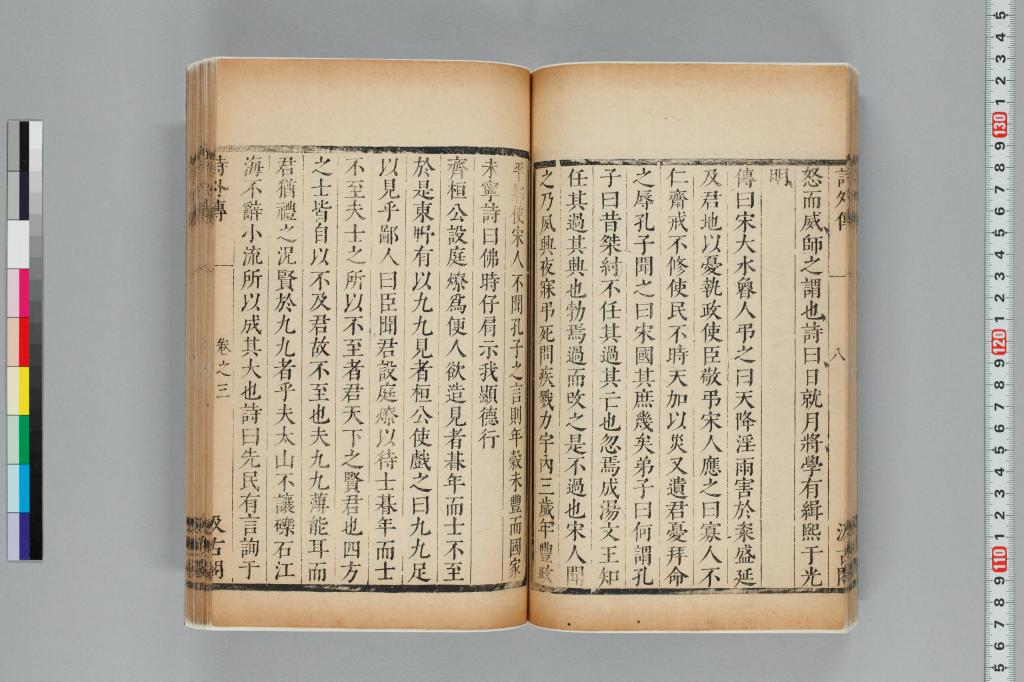 詩外傳
八
汲古閣
怒而威師之謂也詩曰日就月將學有緝熙于光
明
傳曰宋大水魯人弔之曰天降淫雨害於粢盛延
及君地以憂執政使臣敬弔宋人應之曰寡人不
仁齋戒不修使民不時天加以災又遺君憂拜命
之辱孔子聞之曰宋國其庶幾矣弟子曰何謂孔
子曰昔桀紂不任其過其亡也忽焉成湯文王知
任其過其興也勃焉過而改之是不過也宋人聞
之乃夙興夜寐弔死問疾戮力宇內三歲年豐政
平鄉使宋人不聞孔子之言則年穀未豐而國家
未寧詩曰佛時仔肩示我顯德行
齊桓公設庭燎爲便人欲造見者朞年而士不至
於是東野有以九九見者桓公使戲之曰九九足
以見乎鄙人曰臣聞君設庭燎以待士朞年而士
不至夫士之所以不至者君天下之賢君也四方
之士皆自以不及君故不至也夫九九薄能耳而
君猶禮之況賢於九九者乎夫太山不讓礫石江
海不辭小流所以成其大也詩曰先民有言詢于
詩外傳
卷之三
汲古閣